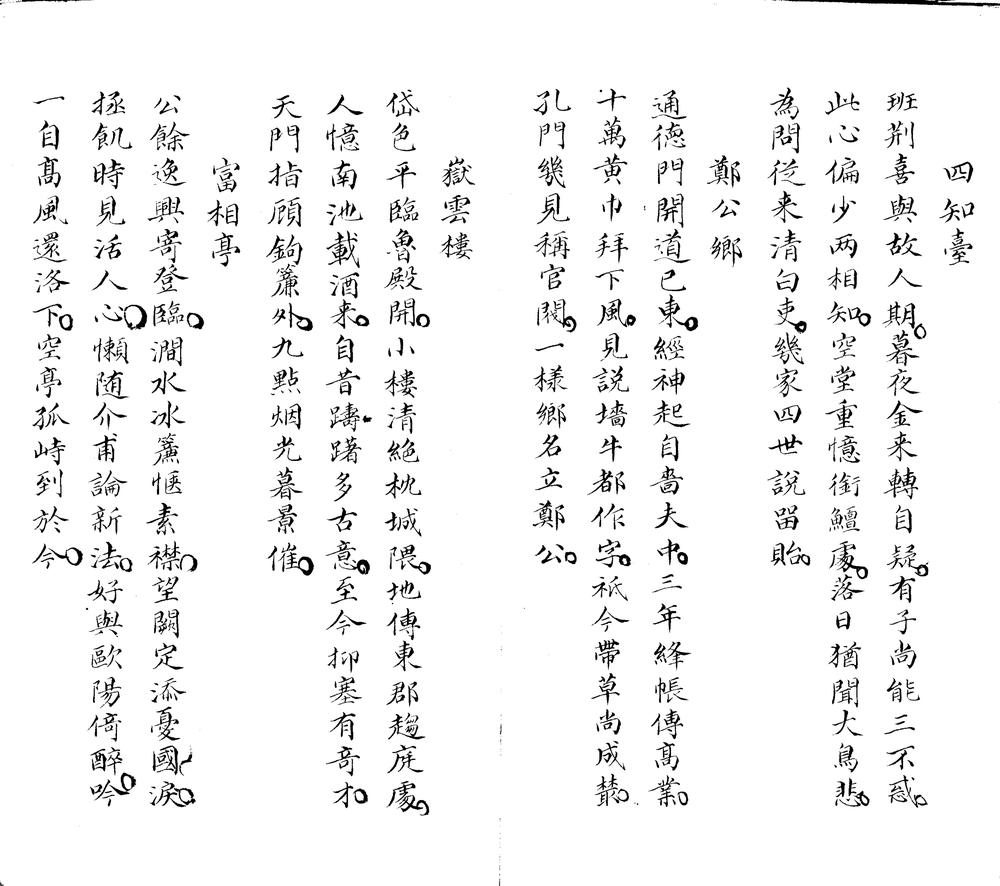 四知臺
班荆喜與故人期暮夜金来轉自疑有子尚能三不惑
此心偏少两相知空堂重憶銜鱣處落日猶聞大鳥悲
為問従来清白吏幾家四世說畱貽
鄭公鄉
通德門開道已東經神起自嗇夫中三年絳帳傳髙業
十萬黄巾拜下風見說墻牛都作字祇今帶草尚成藂
孔門幾見稱官閥一樣鄉名立鄭公
嶽雲樓
岱色平臨魯殿開小樓清絕枕城隈地傳東郡趨庭處
人憶南池載酒来自昔躊躇多古意至今抑塞有竒才
天門指顧鉤簾外九點烟光暮景催
富相亭
公餘逸興寄登臨澗水冰簾愜素襟望闕定添憂國淚
拯飢時見活人心懶随介甫論新法好與歐陽倚醉吟
一自髙風還洛下空亭孤峙到於今